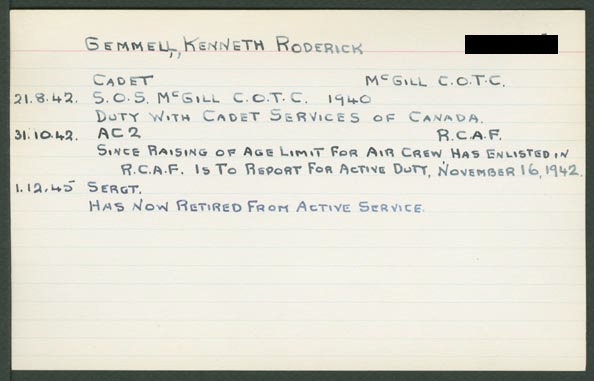 GEMMELL, KENNETH RODERICK
CADET McGILL C.O.T.C.
21.8.42. S.O.S. McGILL C.O.T.C. 1940
DUTY WITH CADET SERVICES OF CANADA.
31.10.42. AC2 R.C.A.F.
SINCE RAISING OF AGE LIMIT FOR AIR CREW HAS ENLISTED IN
R.C.A.F. IS TO REPORT FOR ACTIVE DUTY, NOVEMBER 16, 1942.
1.12.45 SERGT.
HAS NOW RETIRED FROM ACTIVE SERVICE.